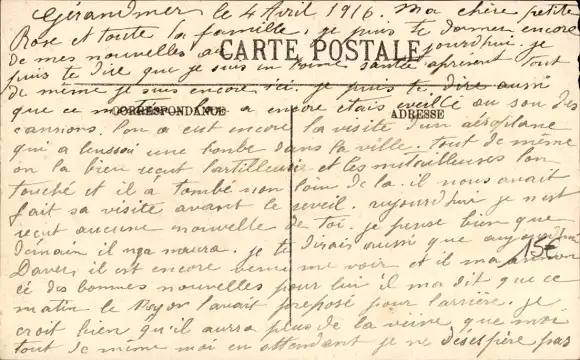 Gérardmer le 4 Avril 1916. Ma chère petite
Rose et toute la famille, je puis te donner encore
de mes nouvelles au jourd'hui. je
CARTE POSTALE
puis te dire que je suis en bonne santé apresent tout
de même je suis encore ici. je puis te dire aussi
que ce matin l'on a encore étais eveillé au son des
CORRESPONDANCE
ADRESSE
cansions. l'on a eut encore la visite d'un aéroplane
qui a laussoi une bombe dans la ville. tout de même
on la bien reçut lartilleuri et les mitailleuses lon
touché et il a tombé non loin de la. il nous avait
fait sa visite avant le reveil. aujourd'hui je n'est
reçut aucune nouvelle de toi. je pense bien que
demain il nya maura. je te dirais aussi que aujourd'hui
15€
Daver, il est encore venu me voir et il ma annon
cé des bonnes nouvelles pour lui il ma dit que ce
matin le Mayor lavait proposé pour l'arrière. je
croit bien qu'il aursa plus de la veine que moi
tout de même moi en attendant je ne désespère pas